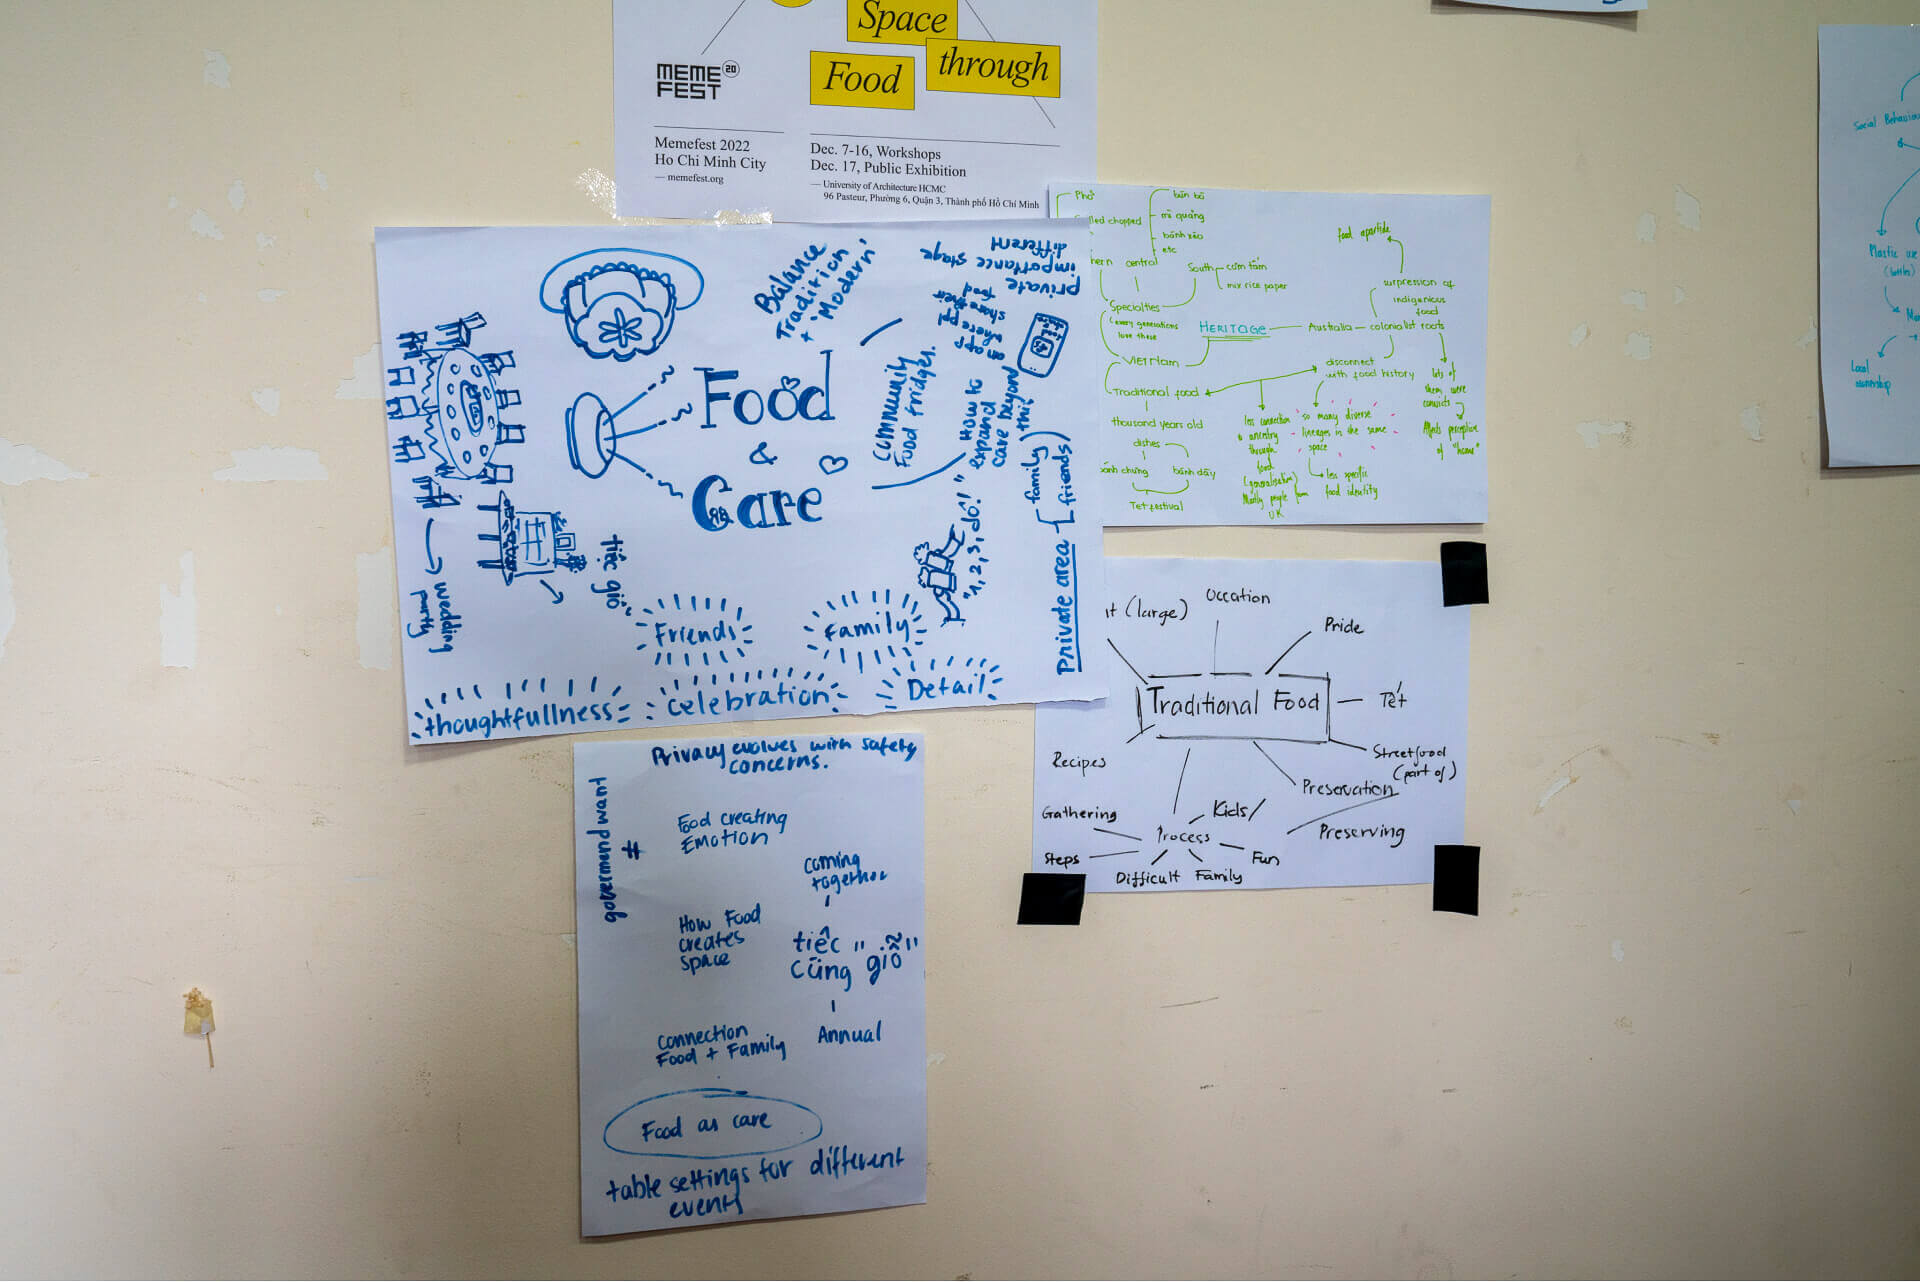 Space
Food
through
MEME 20
FEST
Memefest 2022
Ho Chi Minh City
— memefest.org
Dec. 7-16, Workshops
Dec. 17, Public Exhibition
— University of Architecture HCMC
96 Pasteur, Phường 6, Quận 3, Thành phố Hồ Chí Minh
Balance
Tradition
+ 'Modern'
different
importance stage
private
an app
where ppl
share their
food
Community
Food fridges.
How to
expand
care beyond
this
Food
&
Care
"1,2,3, dô!"
Private area
family
friends
wedding
party
tiệc giỗ
Friends
Family
thoughtfullness
celebration
Detail
Phở
chopped
central
bún bò
mì quảng
bánh xèo
etc
South
cơm tấm
mix rice paper
Specialties
(every generations
love these
HERITAGE
Vietnam
Traditional food
thousand years old
dishes
bánh chưng
bánh dầy
Tet festival
Australia
colonialist roots
surpression of
indigenous
food
food apartide
disconnect
with food history
less connection
ancestry
through
food
(generalisation)
Mostly people from
UK
so many diverse
lineages in the same
space
less specific
food identity
lots of
them were
convicts
Affects perceptive
of "home"
(large)
Occation
Pride
Traditional Food
Tết
Streetfood
(part of)
Recipes
Preservation
Preserving
Gathering
Kids/
Process
Steps
Fun
Difficult
Family
Privacy evolves with safety
concerns.
govermend want
#
Food creating
Emotion
coming
together
How Food
creates
space
tiệc "
cũng giỗ"
Annual
connection
Food + Family
Food as care
table settings for different
events
Social Behaviou
Plastic use
(bottles)
Local
ownership